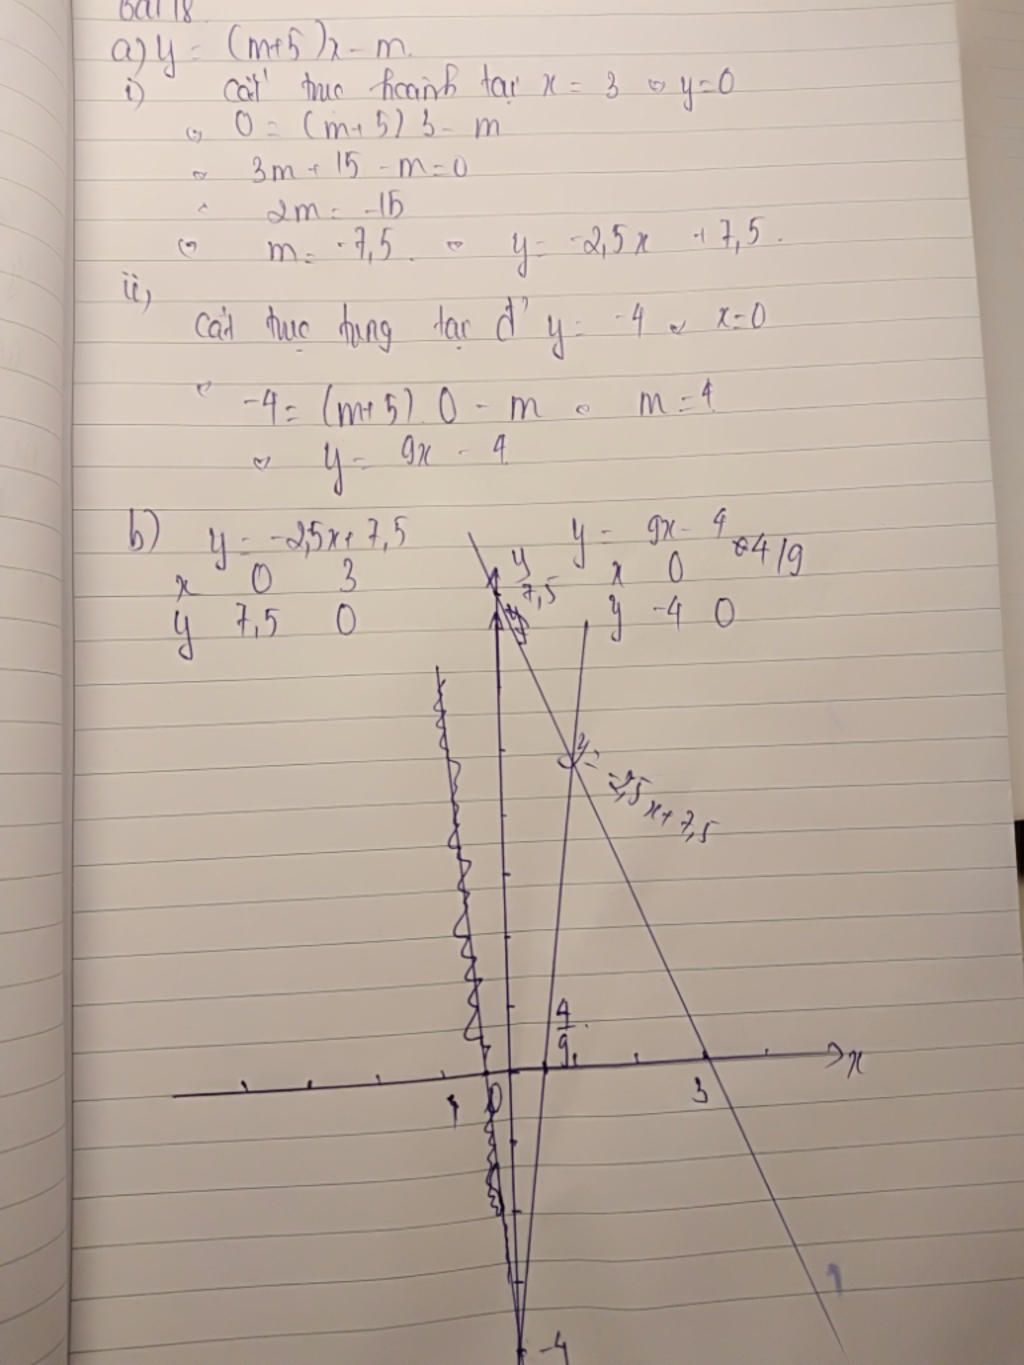 Bài 18
a) y = (m+5)x - m.
i) Cắt trục hoành tại x = 3 ⇔ y=0
⇔ 0 = (m+5) 3 - m
⇔ 3m + 15 - m=0
2m = -15
⇔ m = -7,5. ⇔ y= -2,5x + 7,5.
ii,
Cắt trục tung tại đ' y = -4 ⇔ x=0
⇔ -4 = (m+5) 0 - m ⇔ m = 4
⇔ y = 9x - 4
b) y = -2,5x+ 7,5 y = 9x - 4
x 0 3 x 0 4/9
y 7,5 0 y -4 0
y
7,5
y = -2,5x+ 7,5
4/9
x
0
3
-4